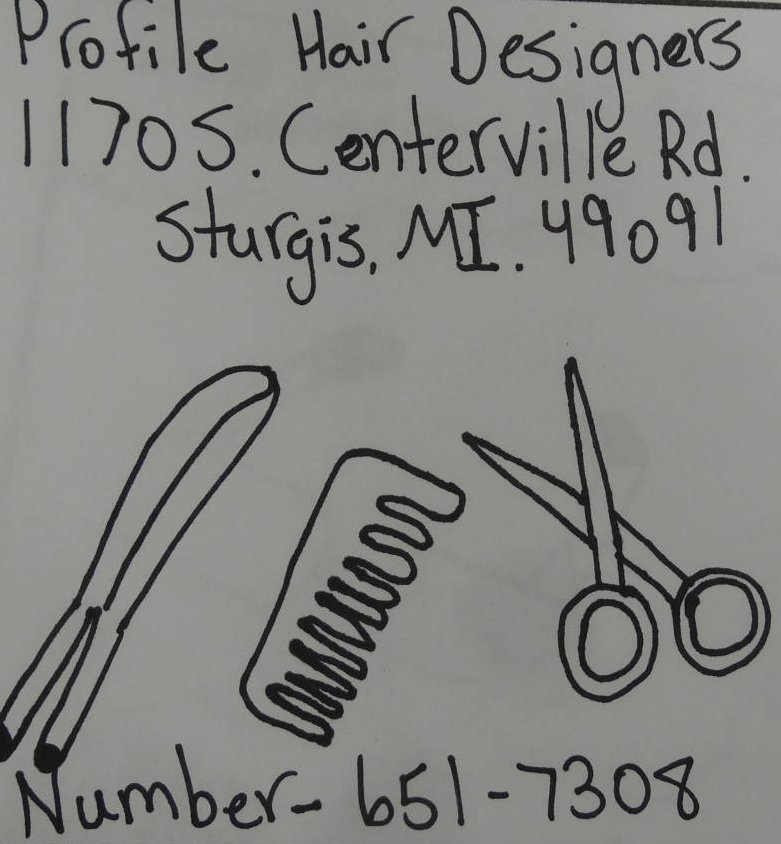 Profile Hair Designers
1170 S. Centerville Rd.
Sturgis, MI. 49091
Number- 651-7308